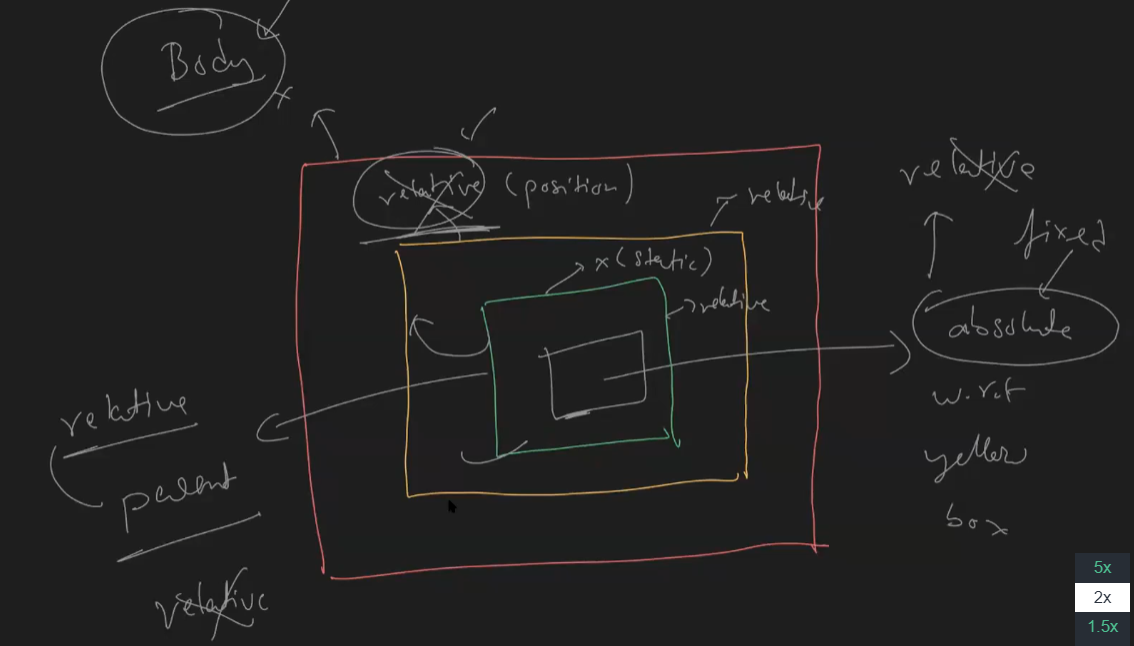 Body
relative (position)
relative
relative
x (static)
fixed
relative
absolute
w.r.t
yellow
box
relative
parent
relative
5x
2x
1.5x